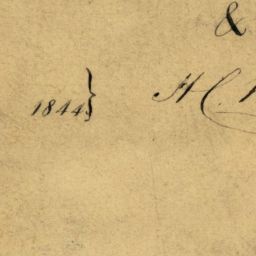 &
1844} H.C.